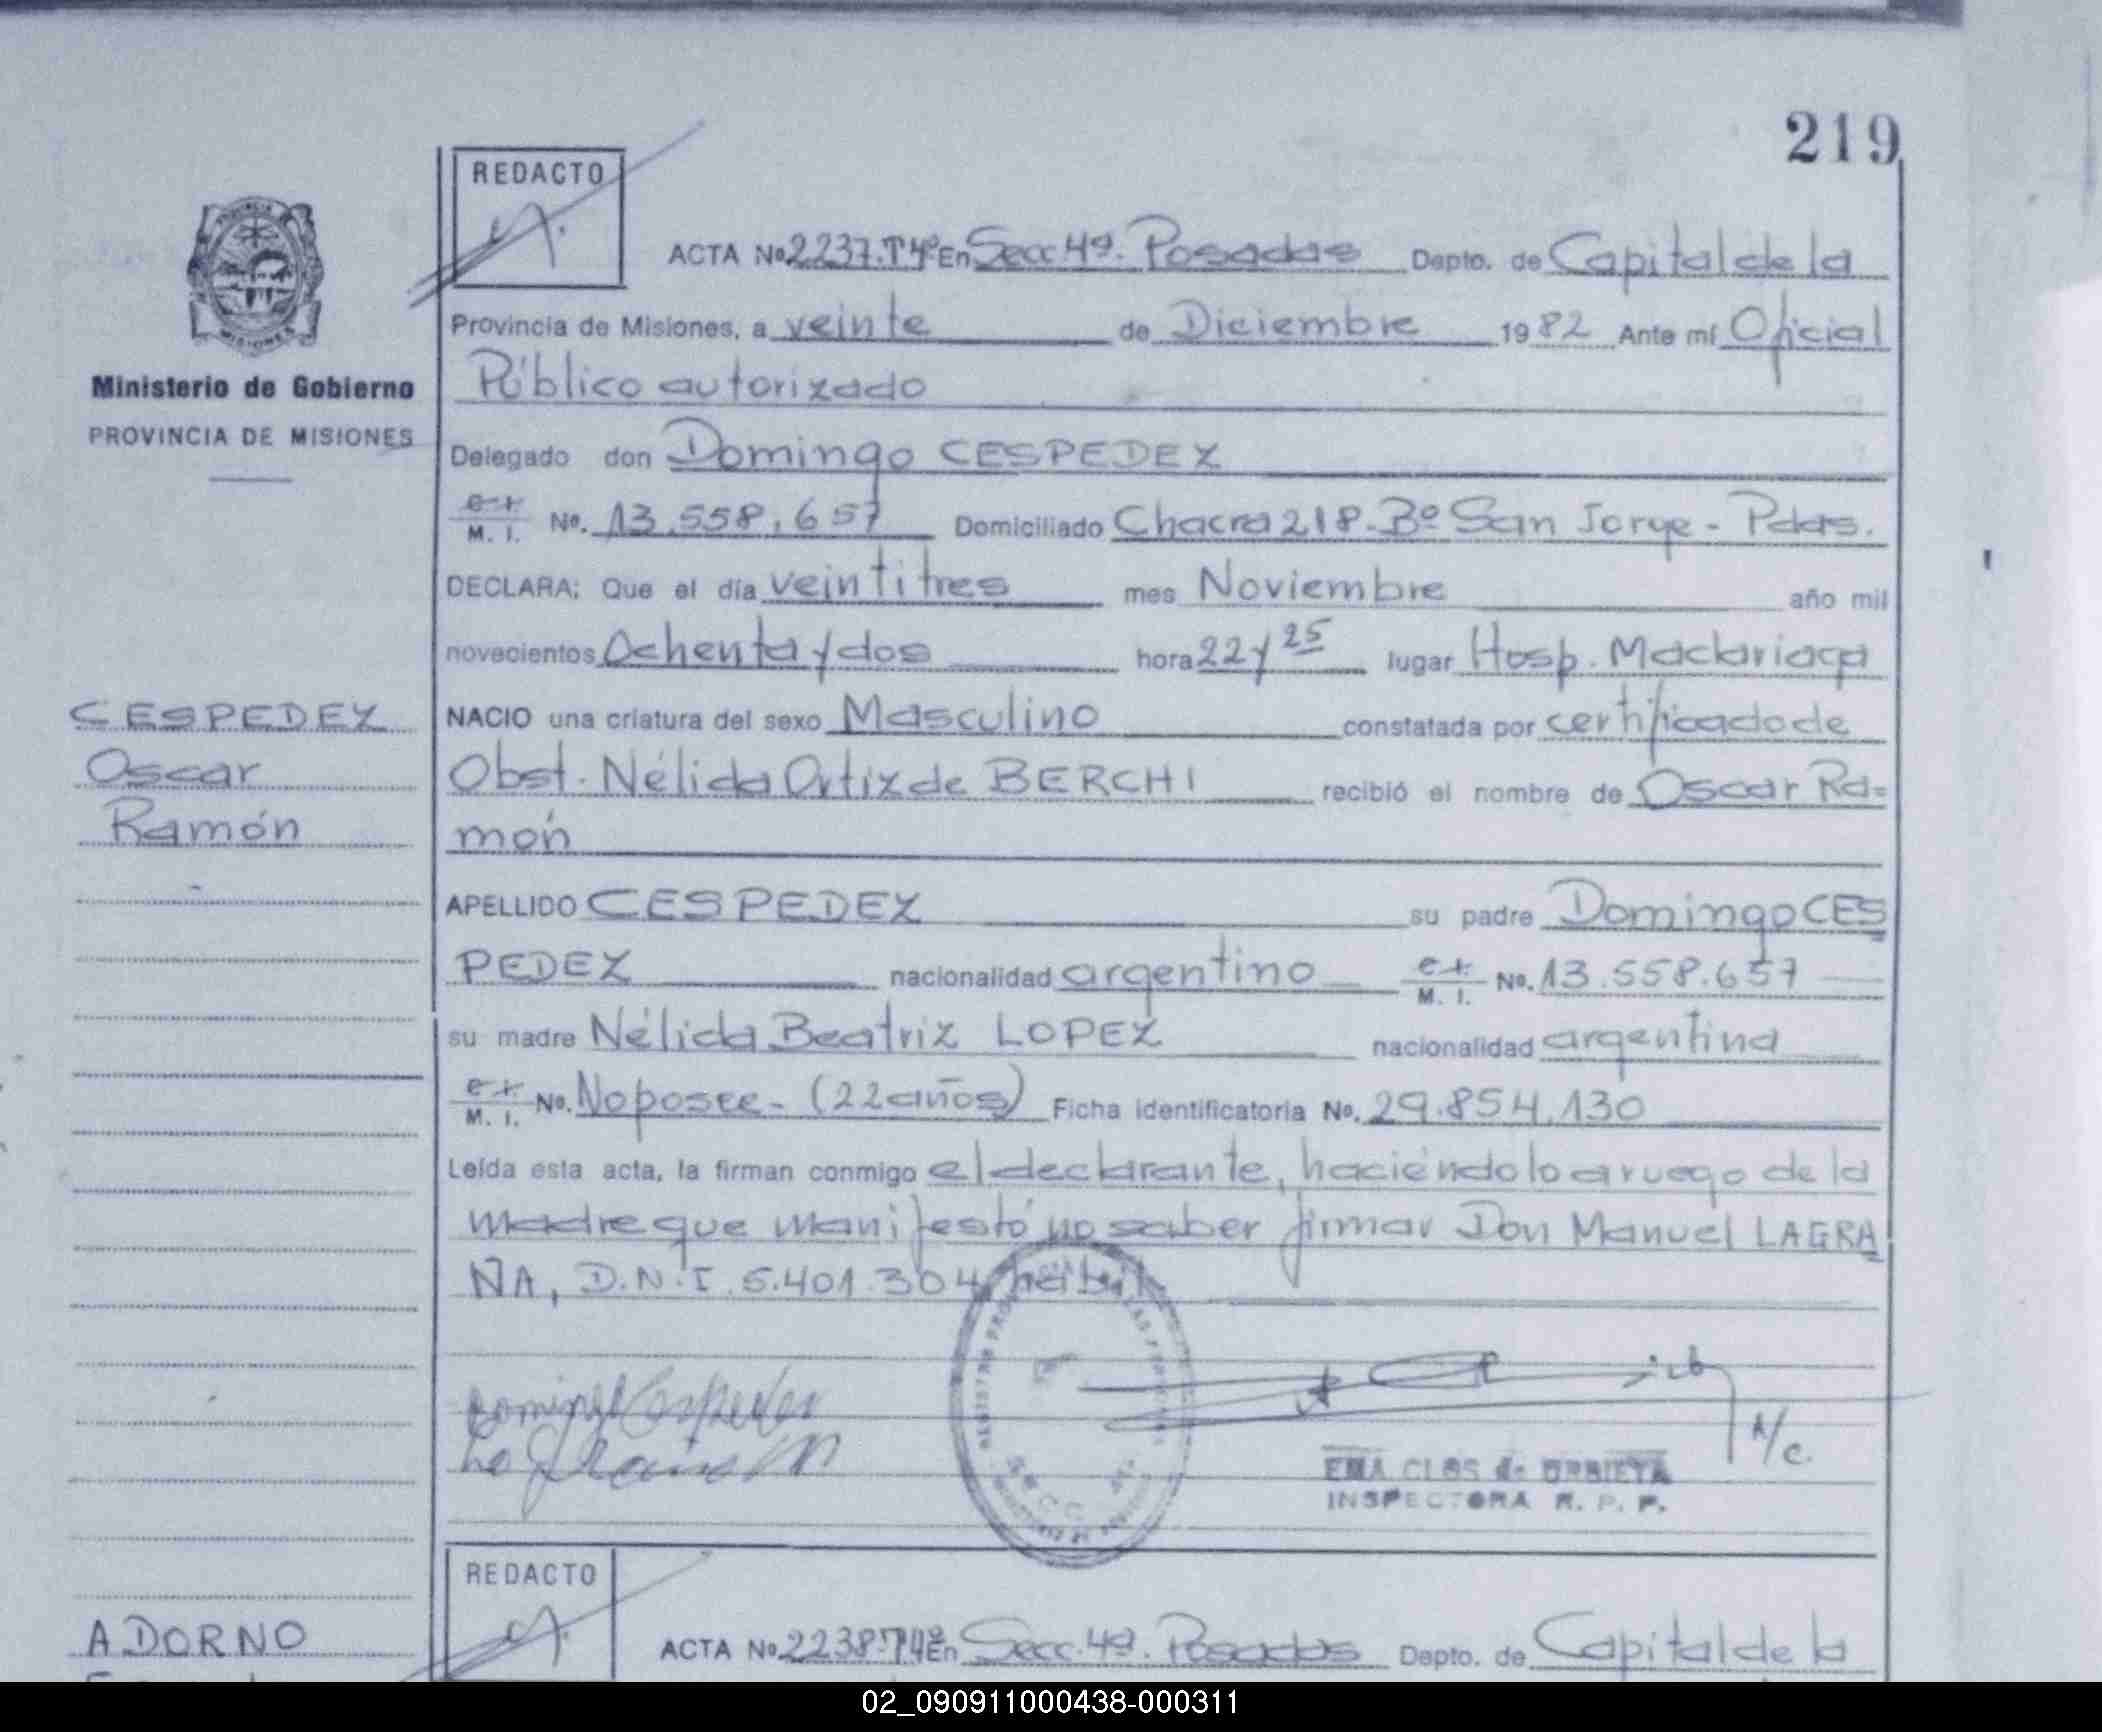 219
REDACTO
ACTA No 2237.Tº4º En Secc 4ª. Posadas Depto. de Capital de la
Provincia de Misiones, a veinte de Diciembre 1982 Ante mí Oficial
Público autorizado
Ministerio de Gobierno
PROVINCIA DE MISIONES
Delegado don Domingo CESPEDEZ
M. I. No. 13.558.657 Domiciliado Chacra 218-Bº San Jorge - Pdas.
DECLARA: Que el día veintitres mes Noviembre año mil
novecientos Ochenta y dos hora 22 y 25 lugar Hosp. Madariaga
CESPEDEZ
Oscar
Ramón
NACIO una criatura del sexo Masculino constatada por certificado de
Obst. Nélida Ortiz de BERCHI recibió el nombre de Oscar Ra=
món
APELLIDO CESPEDEZ su padre Domingo CES
PEDEZ nacionalidad argentino M. I. No. 13.558.657
su madre Nélida Beatriz LOPEZ nacionalidad argentina
M. I. No. No posee - (22 años) Ficha identificatoria No. 29.854.130
Leída esta acta, la firman conmigo el declarante, haciéndolo a ruego de la
madre que manifestó no saber firmar Don Manuel LAGRA
ÑA, D.N.I. 5.401.304 habil
Domingo Cespedez
A/C.
EMA CLOS de URBIETA
INSPECTORA R. P. P.
REDACTO
ADORNO
ACTA No 2238.Tº4º En Secc. 4ª. Posadas Depto. de Capital de la
02_090911000438-000311